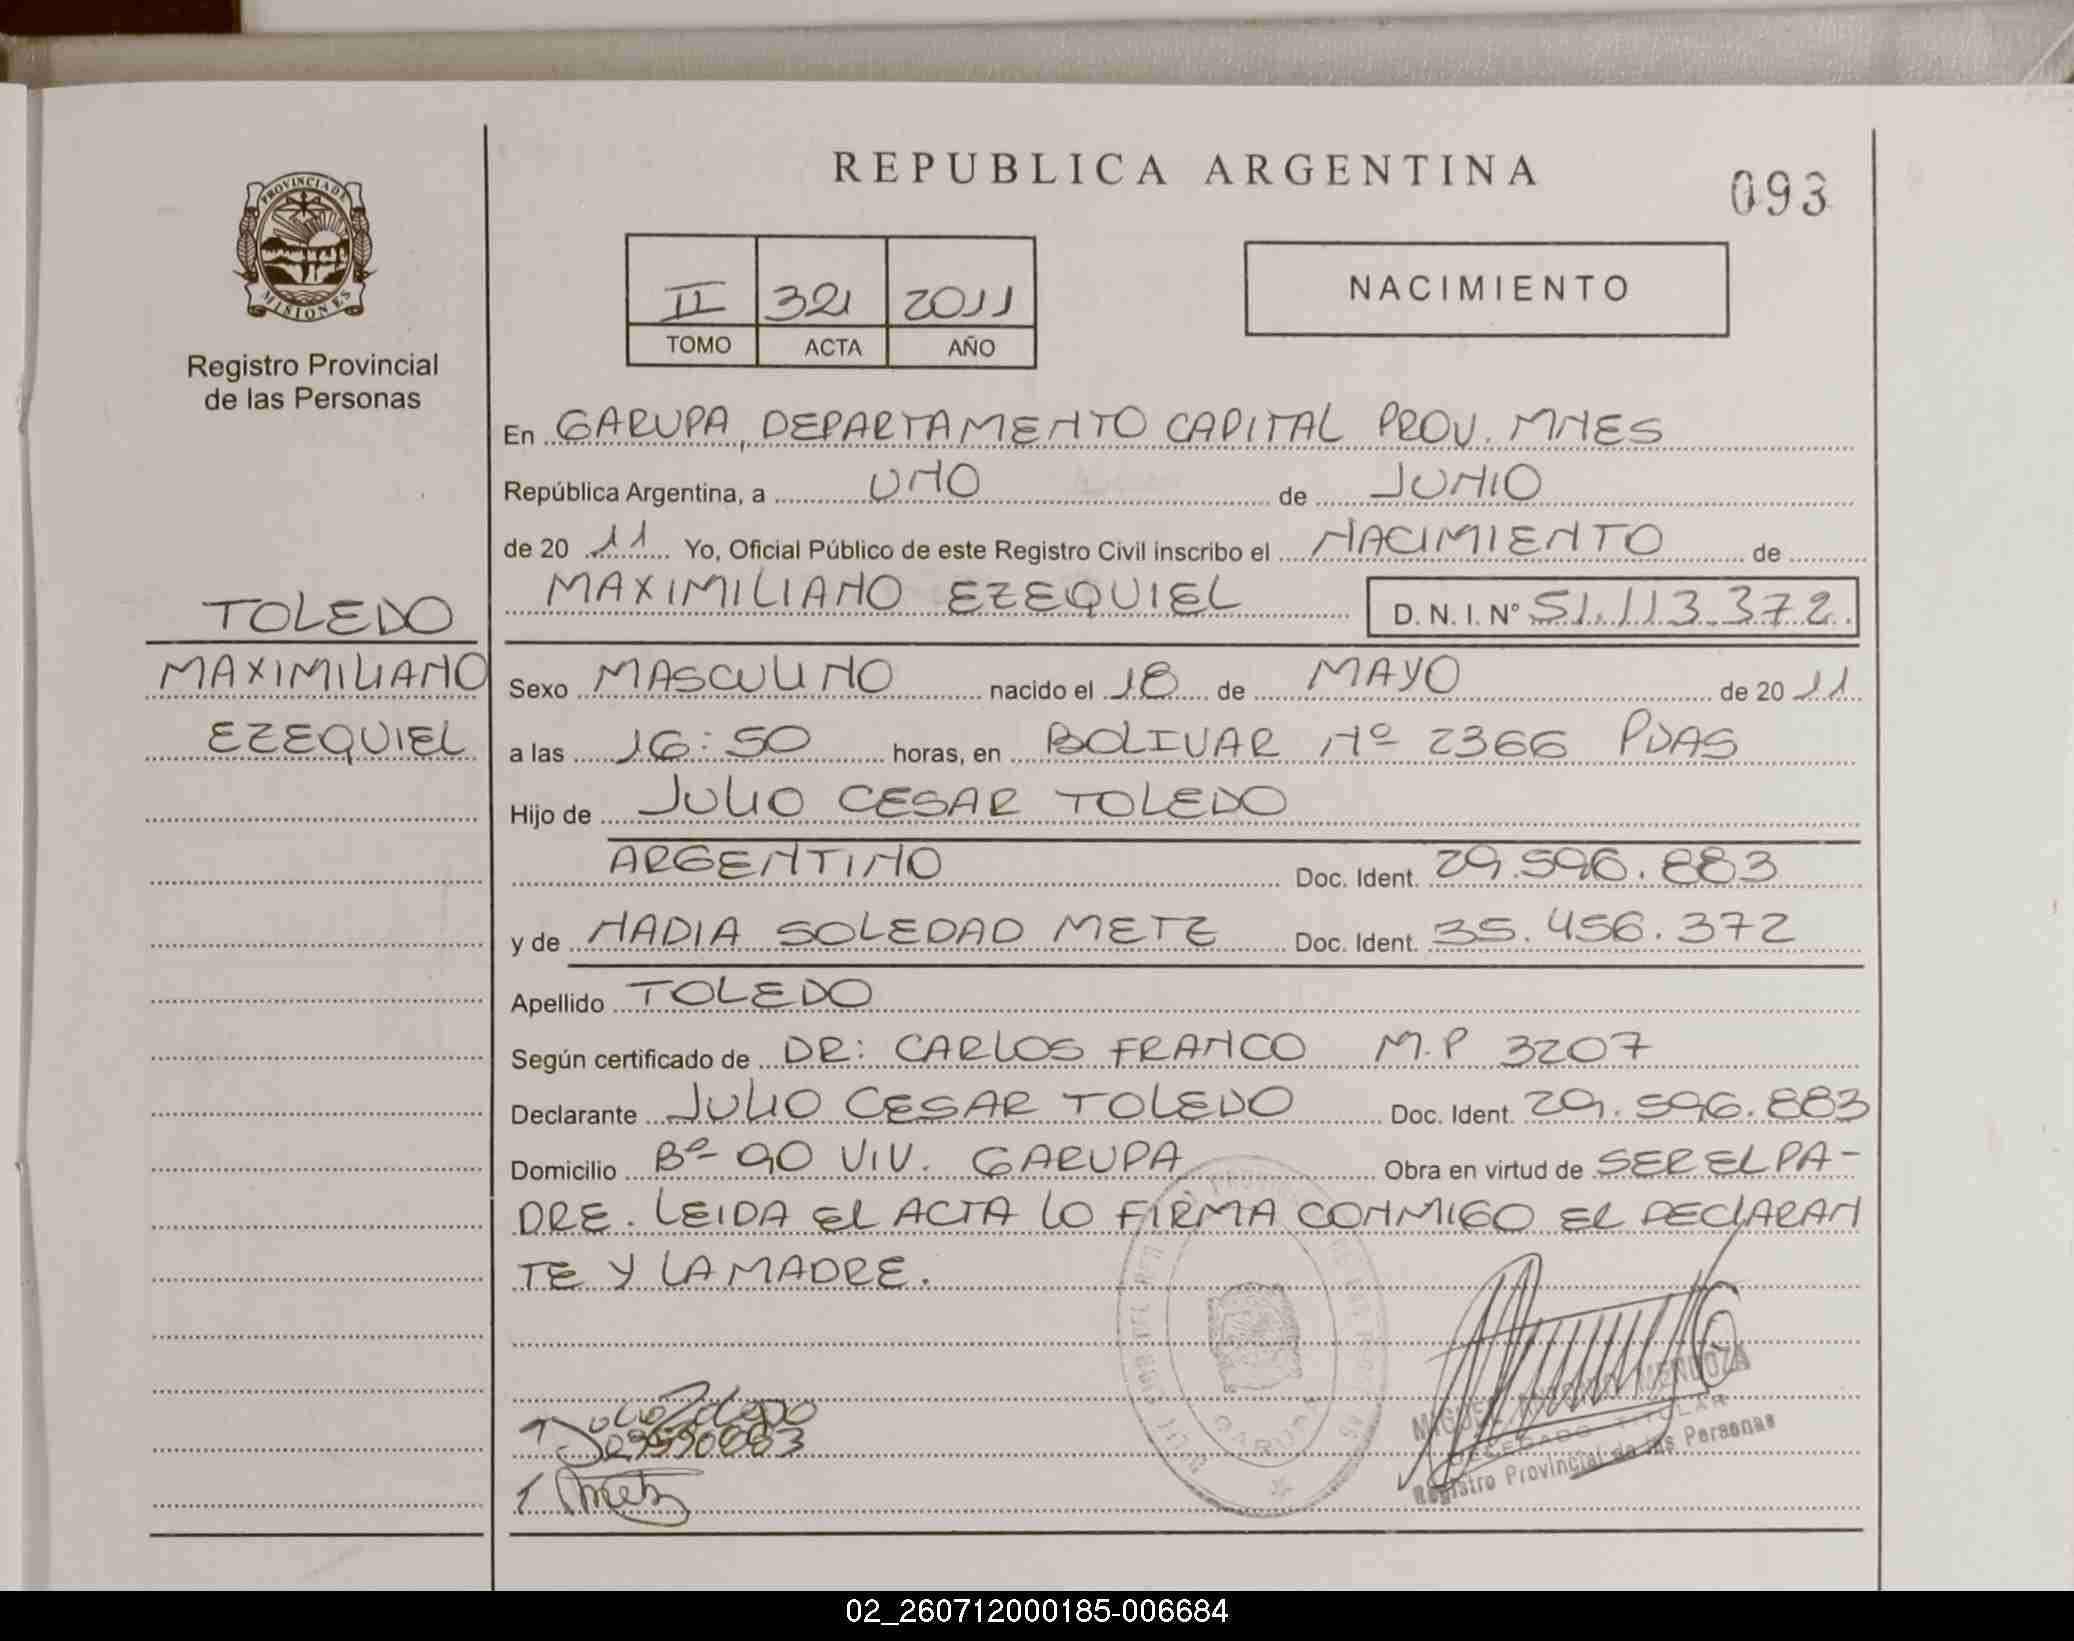 REPUBLICA ARGENTINA
093
PROVINCIA DE
MISIONES
Registro Provincial
de las Personas
II 321 2011
TOMO ACTA AÑO
NACIMIENTO
En GARUPA, DEPARTAMENTO CAPITAL PROV. MNES
República Argentina, a UNO de JUNIO
de 20 11 Yo, Oficial Público de este Registro Civil inscribo el NACIMIENTO de
MAXIMILIANO EZEQUIEL D. N. I. Nº 51.113.372.
TOLEDO
MAXIMILIANO
EZEQUIEL
Sexo MASCULINO nacido el 18 de MAYO de 20 11
a las 16:50 horas, en BOLIVAR Nº 2366 PDAS
Hijo de JULIO CESAR TOLEDO
ARGENTINO Doc. Ident. 29.596.883
y de NADIA SOLEDAD METZ Doc. Ident. 35.456.372
Apellido TOLEDO
Según certificado de DR: CARLOS FRANCO M.P 3207
Declarante JULIO CESAR TOLEDO Doc. Ident. 29.596.883
Domicilio Bº 90 VIV. GARUPA Obra en virtud de SER EL PA-
DRE. LEIDA EL ACTA LO FIRMA CONMIGO EL DECLARAN
TE Y LA MADRE.
Julio Toledo
Metz
GARUPA
MIGUEL ANTONIO MENDOZA
DELEGADO TITULAR
Registro Provincial de las Personas
02_260712000185-006684